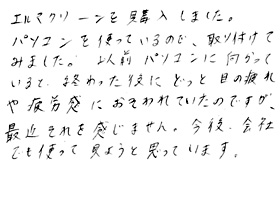 エルマクリーンを購入しました。
パソコンを使っているので、取り付けて
みました。以前パソコンに向かって
いると、終わった後にどっと目の疲れ
や疲労感におそわれていたのですが、
最近それを感じません。今後、会社
でも使って見ようと思っています。